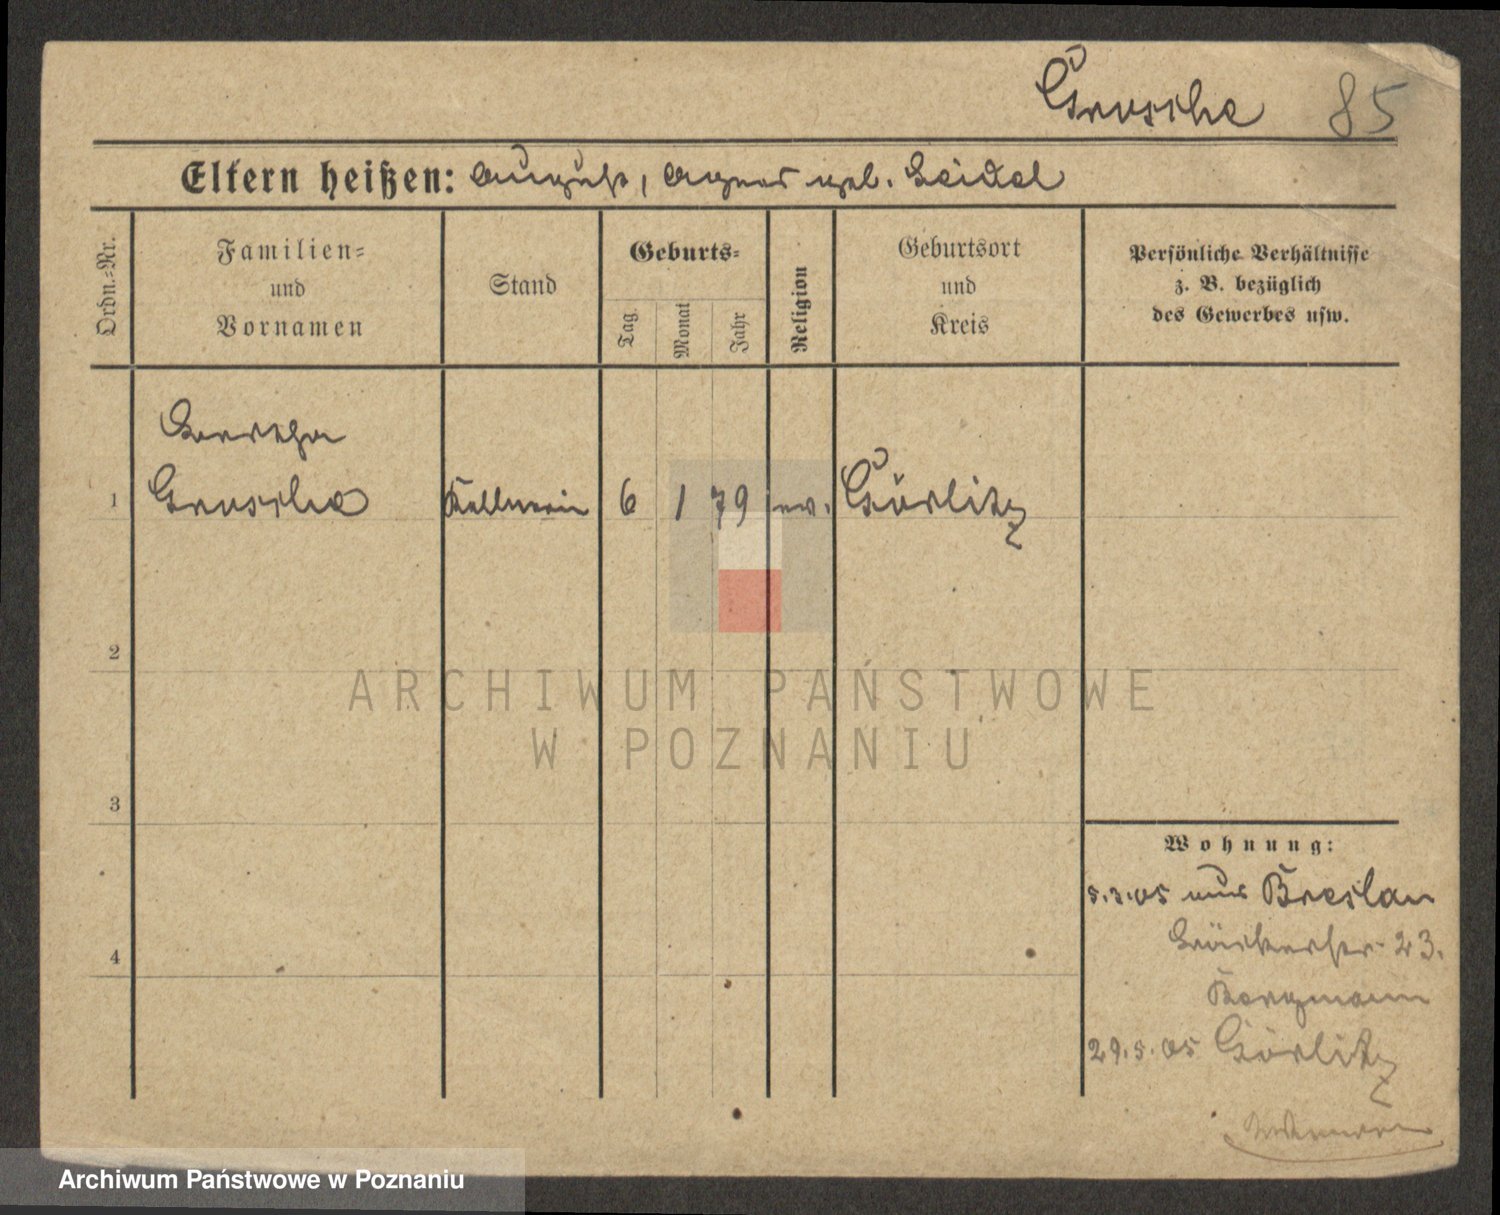 Grosche 85
Eltern heißen: August, Agnes geb. Seidel
Ordn.-Nr.
Familien-
und
Vornamen
Stand
Geburts-
Tag
Monat
Jahr
Religion
Geburtsort
und
Kreis
Persönliche Verhältnisse
z. B. bezüglich
des Gewerbes usw.
Bertha
1 Grosche Kellnerin 6 1 79 ev. Görlitz
2
ARCHIWUM PAŃSTWOWE
W POZNANIU
3
Wohnung:
5.3.05 aus Breslau
23.
4
Bergmann
29.5.05 Görlitz
Archiwum Państwowe w Poznaniu